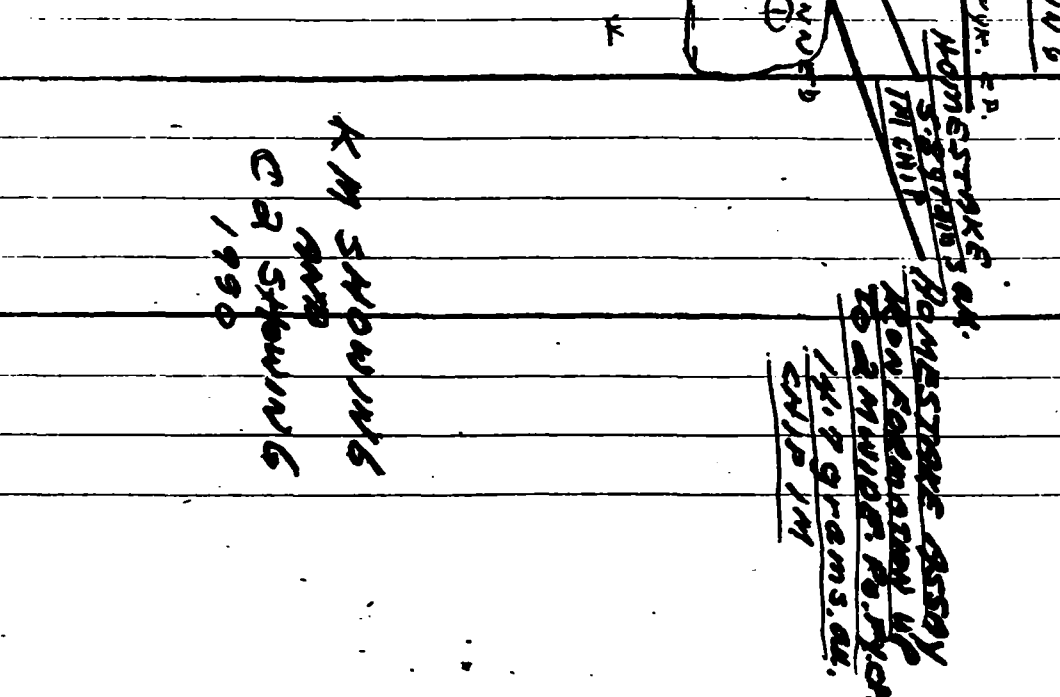 HOMESTAKE
5.8 grams au.
1M CHIP
HOMESTAKE ASSY
IRON FORMATION UP
TO 2M WIDE. Po. Py. c
14.7 grams. au.
CHIP 1M
KM SHOWING
AND
C2 SHOWING
1990